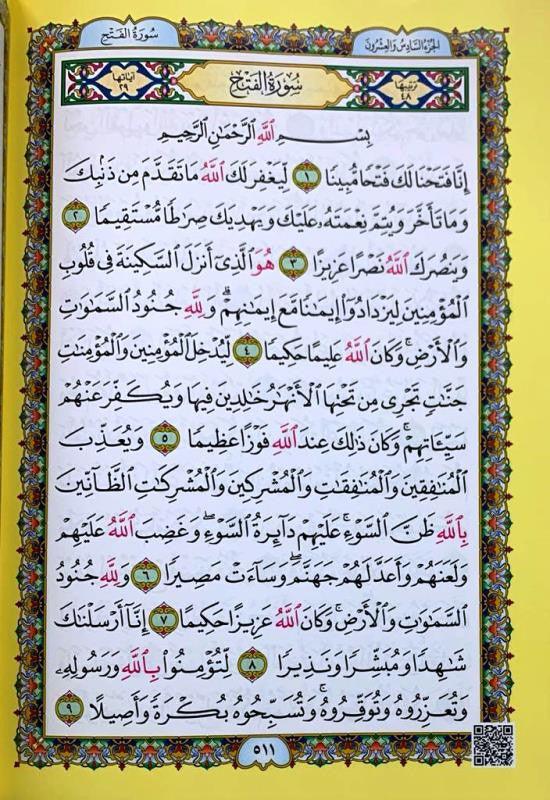 سُورَةُ الفَتْحِ
الجُزْءُ السَّادِسُ وَالعِشْرُونَ
آيَاتُهَا ٢٩
سُورَةُ الفَتْحِ
تَرْتِيبُهَا ٤٨
بِسْمِ اللَّهِ الرَّحْمَٰنِ الرَّحِيمِ
إِنَّا فَتَحْنَا لَكَ فَتْحًا مُّبِينًا ١ لِّيَغْفِرَ لَكَ اللَّهُ مَا تَقَدَّمَ مِن ذَنۢبِكَ
وَمَا تَأَخَّرَ وَيُتِمَّ نِعْمَتَهُۥ عَلَيْكَ وَيَهْدِيَكَ صِرَٰطًا مُّسْتَقِيمًا ٢
وَيَنصُرَكَ اللَّهُ نَصْرًا عَزِيزًا ٣ هُوَ ٱلَّذِىٓ أَنزَلَ ٱلسَّكِينَةَ فِى قُلُوبِ
ٱلْمُؤْمِنِينَ لِيَزْدَادُوٓا۟ إِيمَٰنًا مَّعَ إِيمَٰنِهِمْ ۗ وَلِلَّهِ جُنُودُ ٱلسَّمَٰوَٰتِ
وَٱلْأَرْضِ ۚ وَكَانَ ٱللَّهُ عَلِيمًا حَكِيمًا ٤ لِّيُدْخِلَ ٱلْمُؤْمِنِينَ وَٱلْمُؤْمِنَٰتِ
جَنَّٰتٍ تَجْرِى مِن تَحْتِهَا ٱلْأَنْهَٰرُ خَٰلِدِينَ فِيهَا وَيُكَفِّرَ عَنْهُمْ
سَيِّـَٔاتِهِمْ ۚ وَكَانَ ذَٰلِكَ عِندَ ٱللَّهِ فَوْزًا عَظِيمًا ٥ وَيُعَذِّبَ
ٱلْمُنَٰفِقِينَ وَٱلْمُنَٰفِقَٰتِ وَٱلْمُشْرِكِينَ وَٱلْمُشْرِكَٰتِ ٱلظَّآنِّينَ
بِٱللَّهِ ظَنَّ ٱلسَّوْءِ ۚ عَلَيْهِمْ دَآئِرَةُ ٱلسَّوْءِ ۖ وَغَضِبَ ٱللَّهُ عَلَيْهِمْ
وَلَعَنَهُمْ وَأَعَدَّ لَهُمْ جَهَنَّمَ ۖ وَسَآءَتْ مَصِيرًا ٦ وَلِلَّهِ جُنُودُ
ٱلسَّمَٰوَٰتِ وَٱلْأَرْضِ ۚ وَكَانَ ٱللَّهُ عَزِيزًا حَكِيمًا ٧ إِنَّآ أَرْسَلْنَٰكَ
شَٰهِدًا وَمُبَشِّرًا وَنَذِيرًا ٨ لِّتُؤْمِنُوا۟ بِٱللَّهِ وَرَسُولِهِۦ
وَتُعَزِّرُوهُ وَتُوَقِّرُوهُ ۚ وَتُسَبِّحُوهُ بُكْرَةً وَأَصِيلًا ٩
٥١١